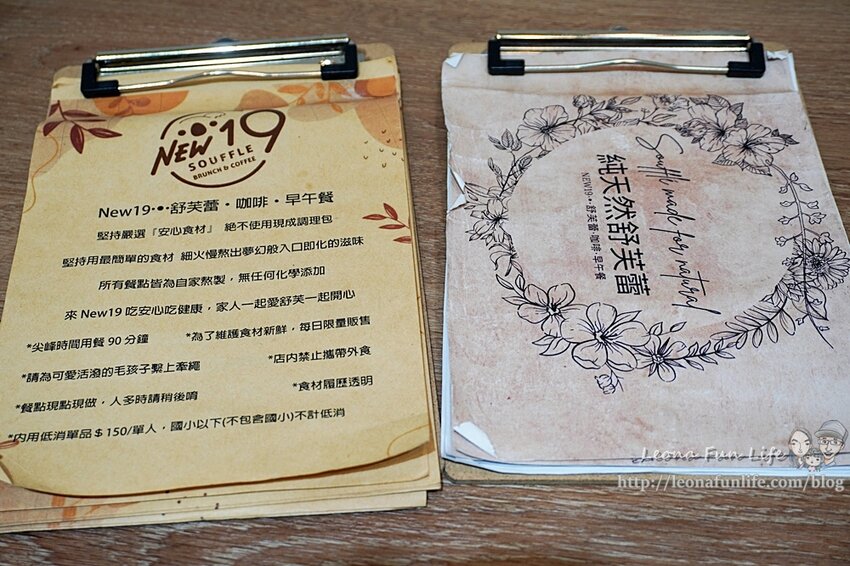 NEW 19
SOUFFLE
BRUNCH & COFFEE
New19·•·舒芙蕾·咖啡·早午餐
堅持嚴選「安心食材」 絕不使用現成調理包
堅持用最簡單的食材 細火慢熬出夢幻般入口即化的滋味
所有餐點皆為自家熬製，無任何化學添加
來 New19 吃安心吃健康，家人一起愛舒芙一起開心
*尖峰時間用餐 90 分鐘 *為了維護食材新鮮，每日限量販售
*請為可愛活潑的毛孩子繫上牽繩 *店內禁止攜帶外食
*餐點現點現做，人多時請稍後唷 *食材履歷透明
*內用低消單品＄150/單人，國小以下(不包含國小)不計低消
Souffl made for natural
純天然舒芙蕾
NEW19·•·舒芙蕾·咖啡·早午餐
Leona Fun Life
http://leonafunlife.com/blog